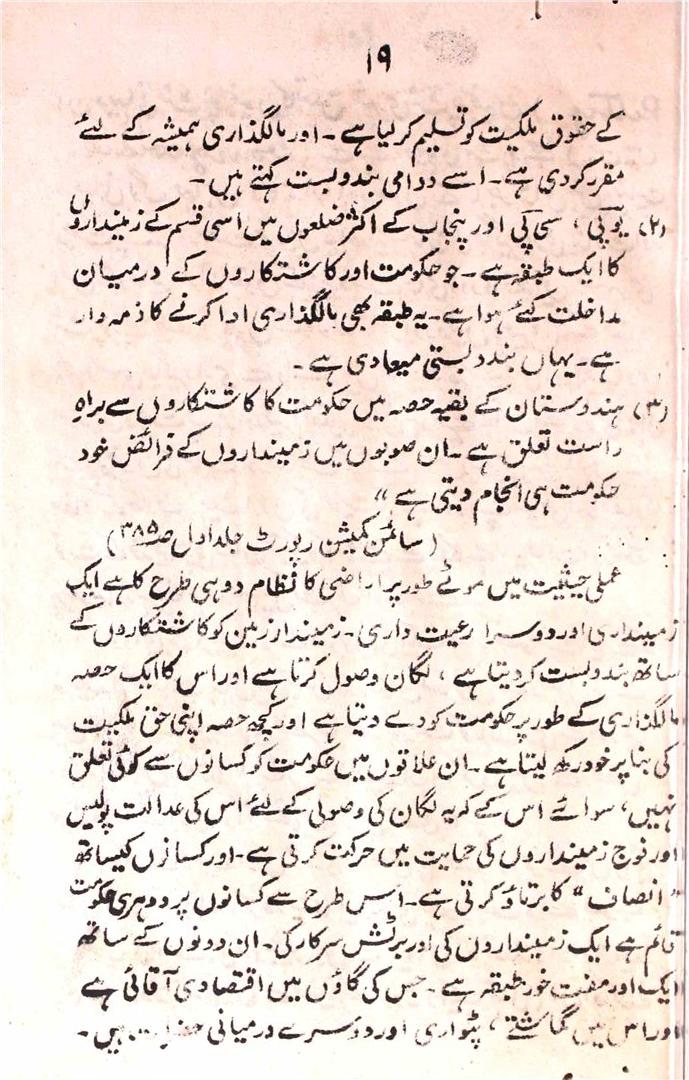 ۱۹
کے حقوق ملکیت کو تسلیم کر لیا ہے ۔ اور مالگذاری ہمیشہ کے لئے
مقرر کردی ہے ۔ اسے دوامی بندوبست کہتے ہیں ۔
(۲) یوپی ، سی پی اور پنجاب کے اکثر ضلعوں میں اسی قسم کے زمینداروں
کا ایک طبقہ ہے ۔ جو حکومت اور کاشتکاروں کے درمیان
مداخلت کئے ہوا ہے ۔ یہ طبقہ بھی مالگذاری ادا کرنے کا ذمہ دار
ہے ۔ یہاں بندوبستی میعادی ہے ۔
(۳) ہندوستان کے بقیہ حصہ میں حکومت کا کاشتکاروں سے براہِ
راست تعلق ہے ۔ ان صوبوں میں زمینداروں کے فرائض خود
حکومت ہی انجام دیتی ہے "
(سائمن کمیشن رپورٹ جلد اول صہ ۳۸۵)
عملی حیثیت میں موٹے طور پر اراضی کا نظام دو ہی طرح کا ہے ایک
زمینداری اور دوسرا رعیت داری ۔ زمیندار زمین کو کاشتکاروں کے
ساتھ بندوبست کر دیتا ہے ، لگان وصول کرتا ہے اور اس کا ایک حصہ
مالگذاری کے طور پر حکومت کو دے دیتا ہے اور کچھ حصہ اپنی حق ملکیت
کی بنا پر خود رکھ لیتا ہے ۔ ان علاقوں میں حکومت کو کسانوں سے کوئی تعلق
نہیں ، سوائے اس کے کہ یہ لگان کی وصولی کے لئے اس کی عدالت پولیس
اور فوج زمینداروں کی حمایت میں حرکت کرتی ہے ۔ اور کسانوں کیساتھ
" انصاف " کا برتاؤ کرتی ہے ۔ اس طرح سے کسانوں پر دوہری حکومت
قائم ہے ایک زمینداروں کی اور برٹش سرکار کی ۔ ان دونوں کے ساتھ
ایک اور مفت خور طبقہ ہے ۔ جس کی گاؤں میں اقتصادی آقائی ہے
اور اس میں گماشتے ، پٹواری اور دوسرے درمیانی حضرات ہیں ۔